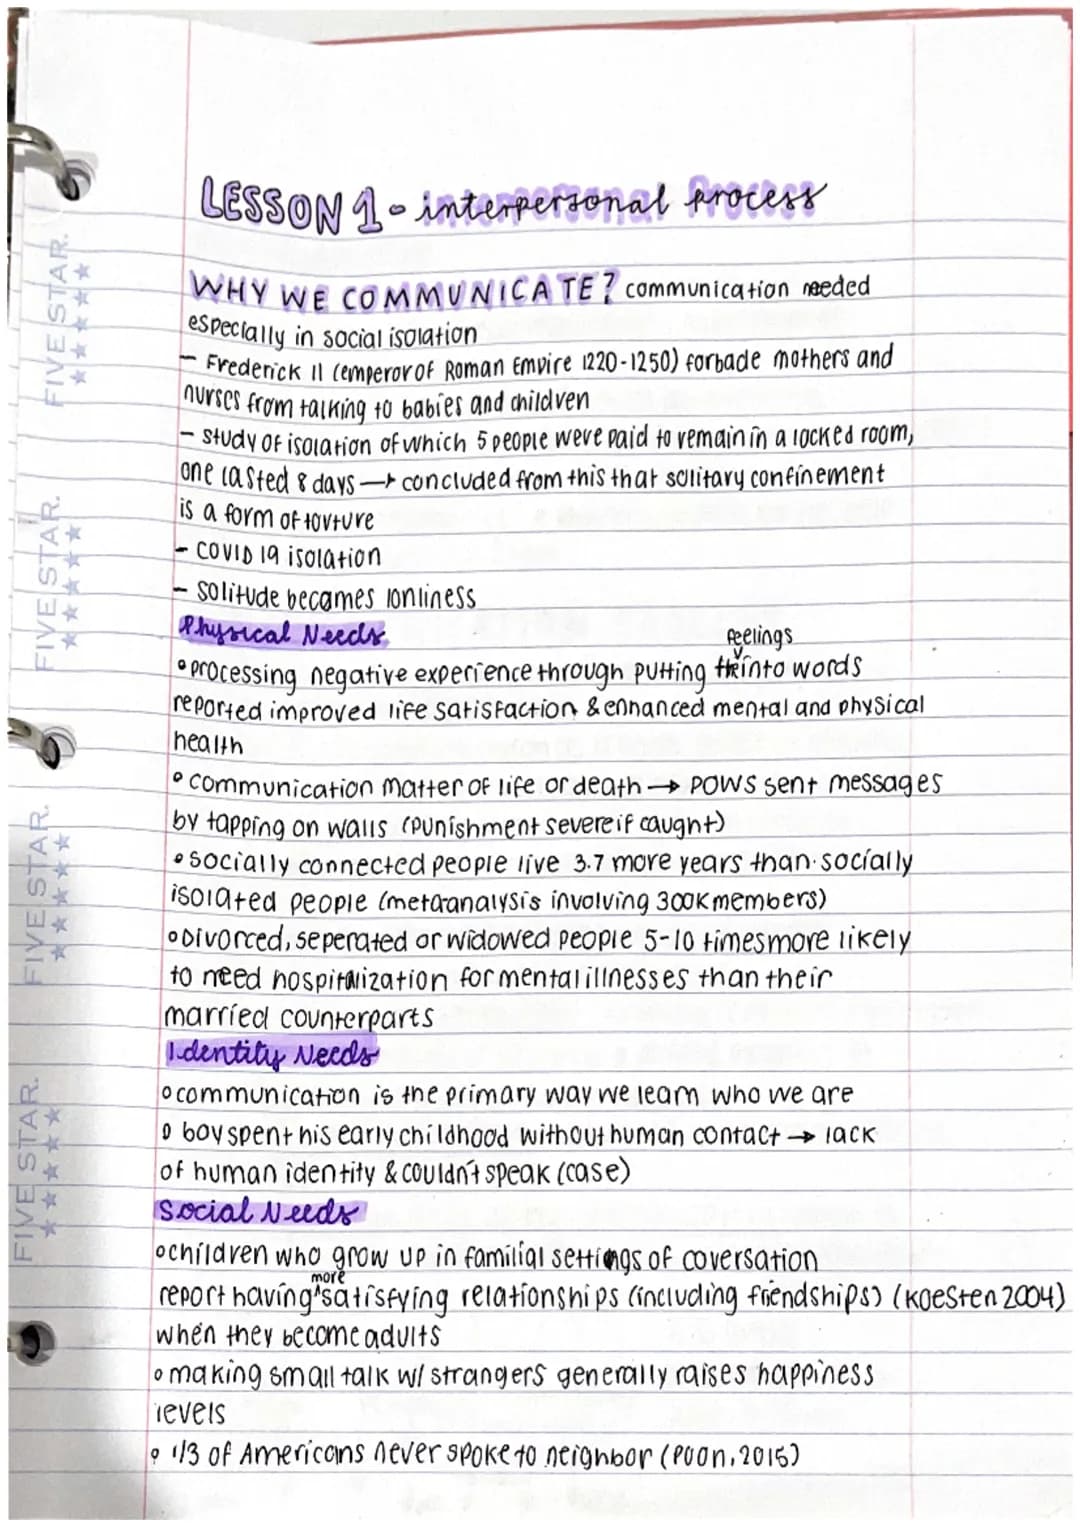 LESSON 1 - interpersonal Process
WHY WE COMMUNICATE? communication needed
especially in social isolation
- Frederick II (emperor of Roman Empire 1220-1250) forbade mothers and
nurses from talking to babies and children
- study of isolation of which 5 people were paid to remain in a locked room,
one lasted 8 days → concluded from this that solitary confinement
is a form of torture
- COVID 19 isolation
- Solitude becomes lonliness
Physical Needs
feelings
• processing negative experience through putting into words
reported improved life satisfaction & enhanced mental and physical
health
• communication matter of life or death → POWS sent messages
by tapping on walls (punishment severe if caught)
• socially connected people live 3.7 more years than socially
isolated people (metaanalysis involving 300K members)
• Divorced, seperated or widowed people 5-10 times more likely
to need hospitalization for mental illnesses than their
married counterparts
Identity Needs
• communication is the primary way we learn who we are
• boy spent his early childhood without human contact → lack
of human identity & couldn't speak (case)
Social Needs
• children who grow up in familial settings of coversation
more
report having ^ satisfying relationships (including friendships) (Koesten 2004)
when they become adults
• making small talk w/ strangers generally raises happiness
levels
• 1/3 of Americans never spoke to neighbor (Poon, 2015)
FIVE STAR.
FIVE STAR.
FIVE STAR.
FIVE STAR.